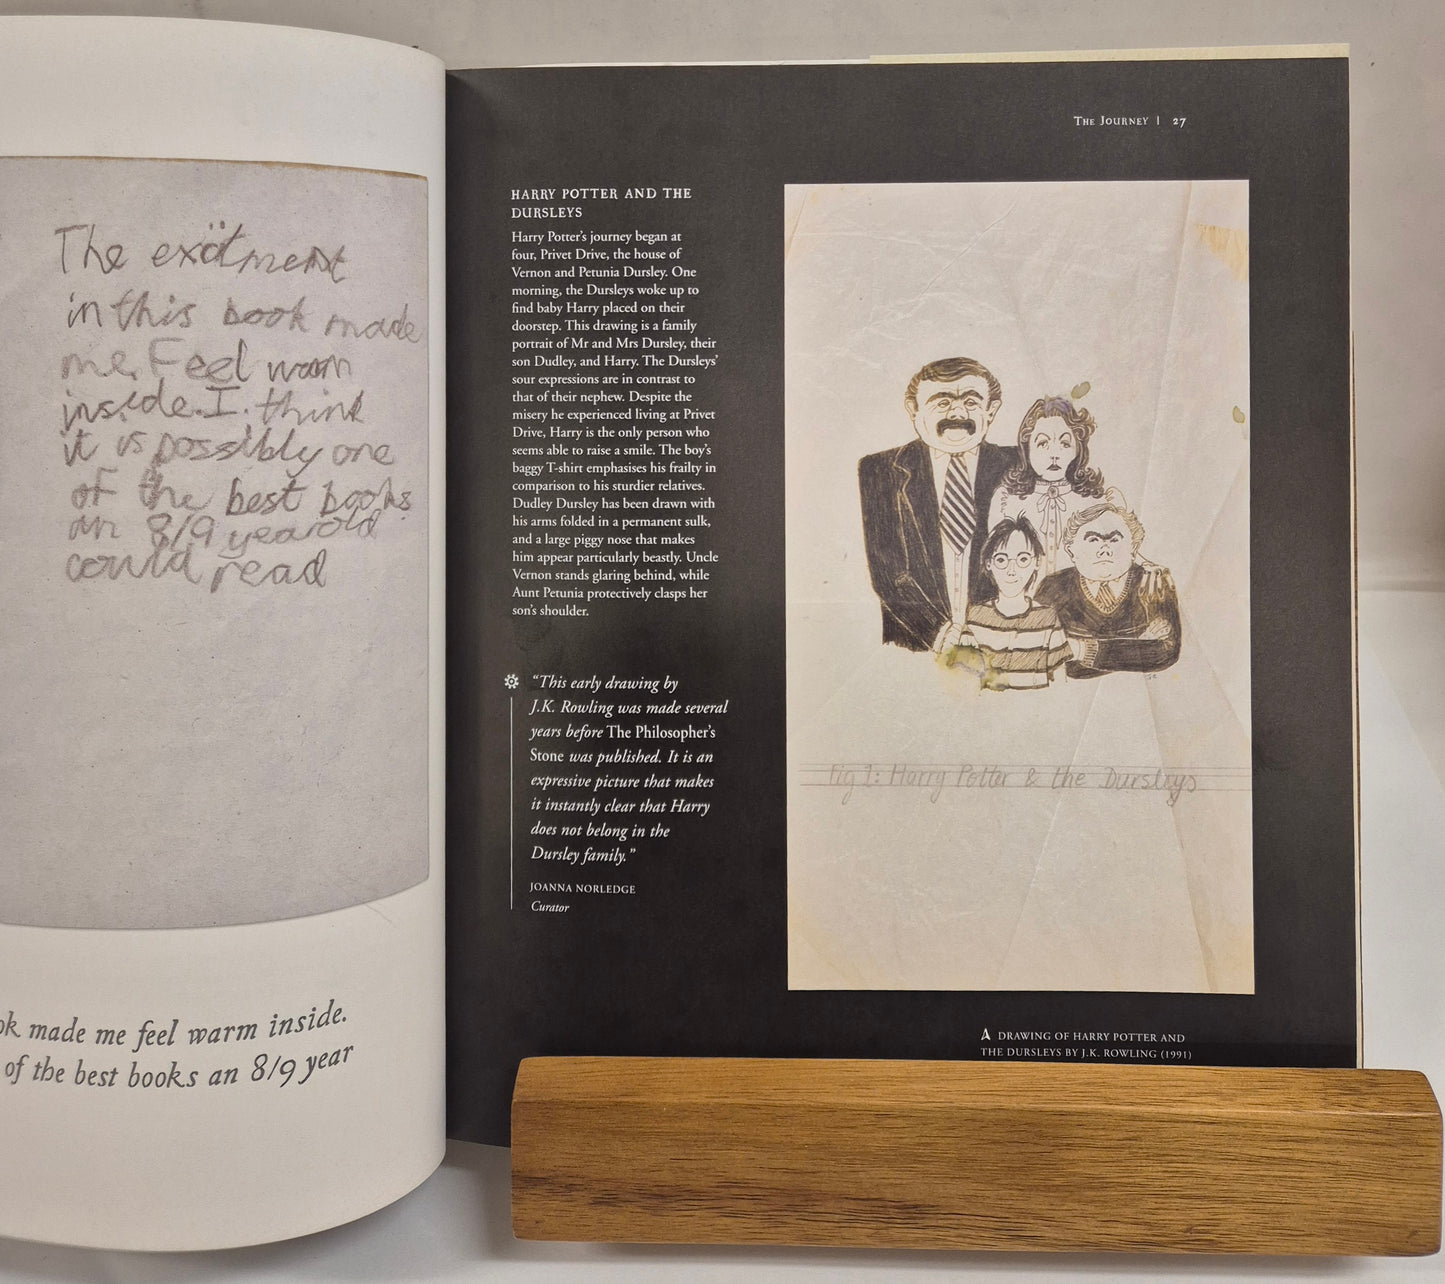 The excitment
in this book made
me. Feel warm
inside. I. think
it is possibly one
of the best books
an 8/9 year old
could read
ok made me feel warm inside.
of the best books an 8/9 year
The Journey | 27
HARRY POTTER AND THE
DURSLEYS
Harry Potter's journey began at
four, Privet Drive, the house of
Vernon and Petunia Dursley. One
morning, the Dursleys woke up to
find baby Harry placed on their
doorstep. This drawing is a family
portrait of Mr and Mrs Dursley, their
son Dudley, and Harry. The Dursleys'
sour expressions are in contrast to
that of their nephew. Despite the
misery he experienced living at Privet
Drive, Harry is the only person who
seems able to raise a smile. The boy's
baggy T-shirt emphasises his frailty in
comparison to his sturdier relatives.
Dudley Dursley has been drawn with
his arms folded in a permanent sulk,
and a large piggy nose that makes
him appear particularly beastly. Uncle
Vernon stands glaring behind, while
Aunt Petunia protectively clasps her
son's shoulder.
"This early drawing by
J.K. Rowling was made several
years before The Philosopher's
Stone was published. It is an
expressive picture that makes
it instantly clear that Harry
does not belong in the
Dursley family."
JOANNA NORLEDGE
Curator
Fig 1: Harry Potter & the Dursleys
A DRAWING OF HARRY POTTER AND
THE DURSLEYS BY J.K. ROWLING (1991)